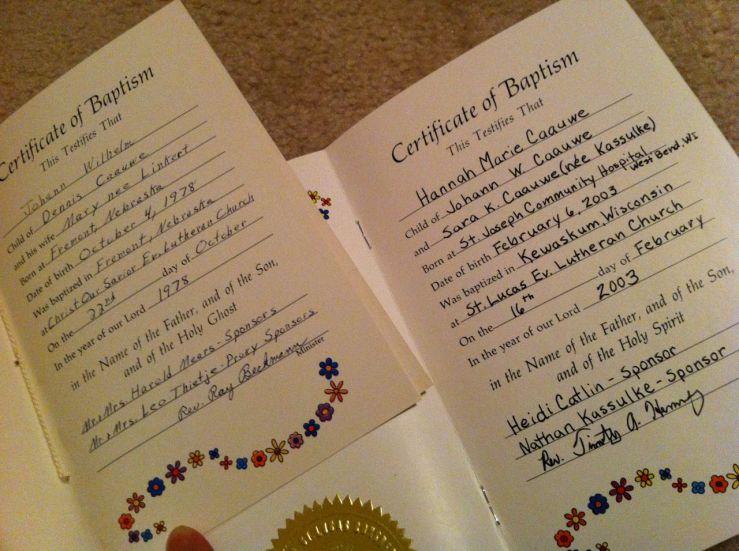 Certificate of Baptism
This Testifies That
Johann Wilhelm
Child of Dennis Caauwe
and his wife Mary nee Linkert
Born at Fremont, Nebraska
Date of birth October 4, 1978
Was baptized in Fremont, Nebraska
at Christ Our Savior Ev. Lutheran Church
On the 22nd day of October
In the year of our Lord 1978
in the Name of the Father, and of the Son,
and of the Holy Ghost
Mr. Mrs. Harold Meers - Sponsors
Mr. Mrs. Leo Thietje - Proxy Sponsors
Rev. Ray Beckmann Minister
Certificate of Baptism
This Testifies That
Hannah Marie Caauwe
Child of Johann W. Caauwe
and Sara K. Caauwe (née Kassulke)
Born at St. Joseph Community Hospital West Bend, WI
Date of birth February 6, 2003
Was baptized in Kewaskum, Wisconsin
at St. Lucas Ev. Lutheran Church
On the 16th day of February
In the year of our Lord 2003
in the Name of the Father, and of the Son,
and of the Holy Spirit
Heidi Catlin - Sponsor
Nathan Kassulke - Sponsor
Rev. Timothy A.